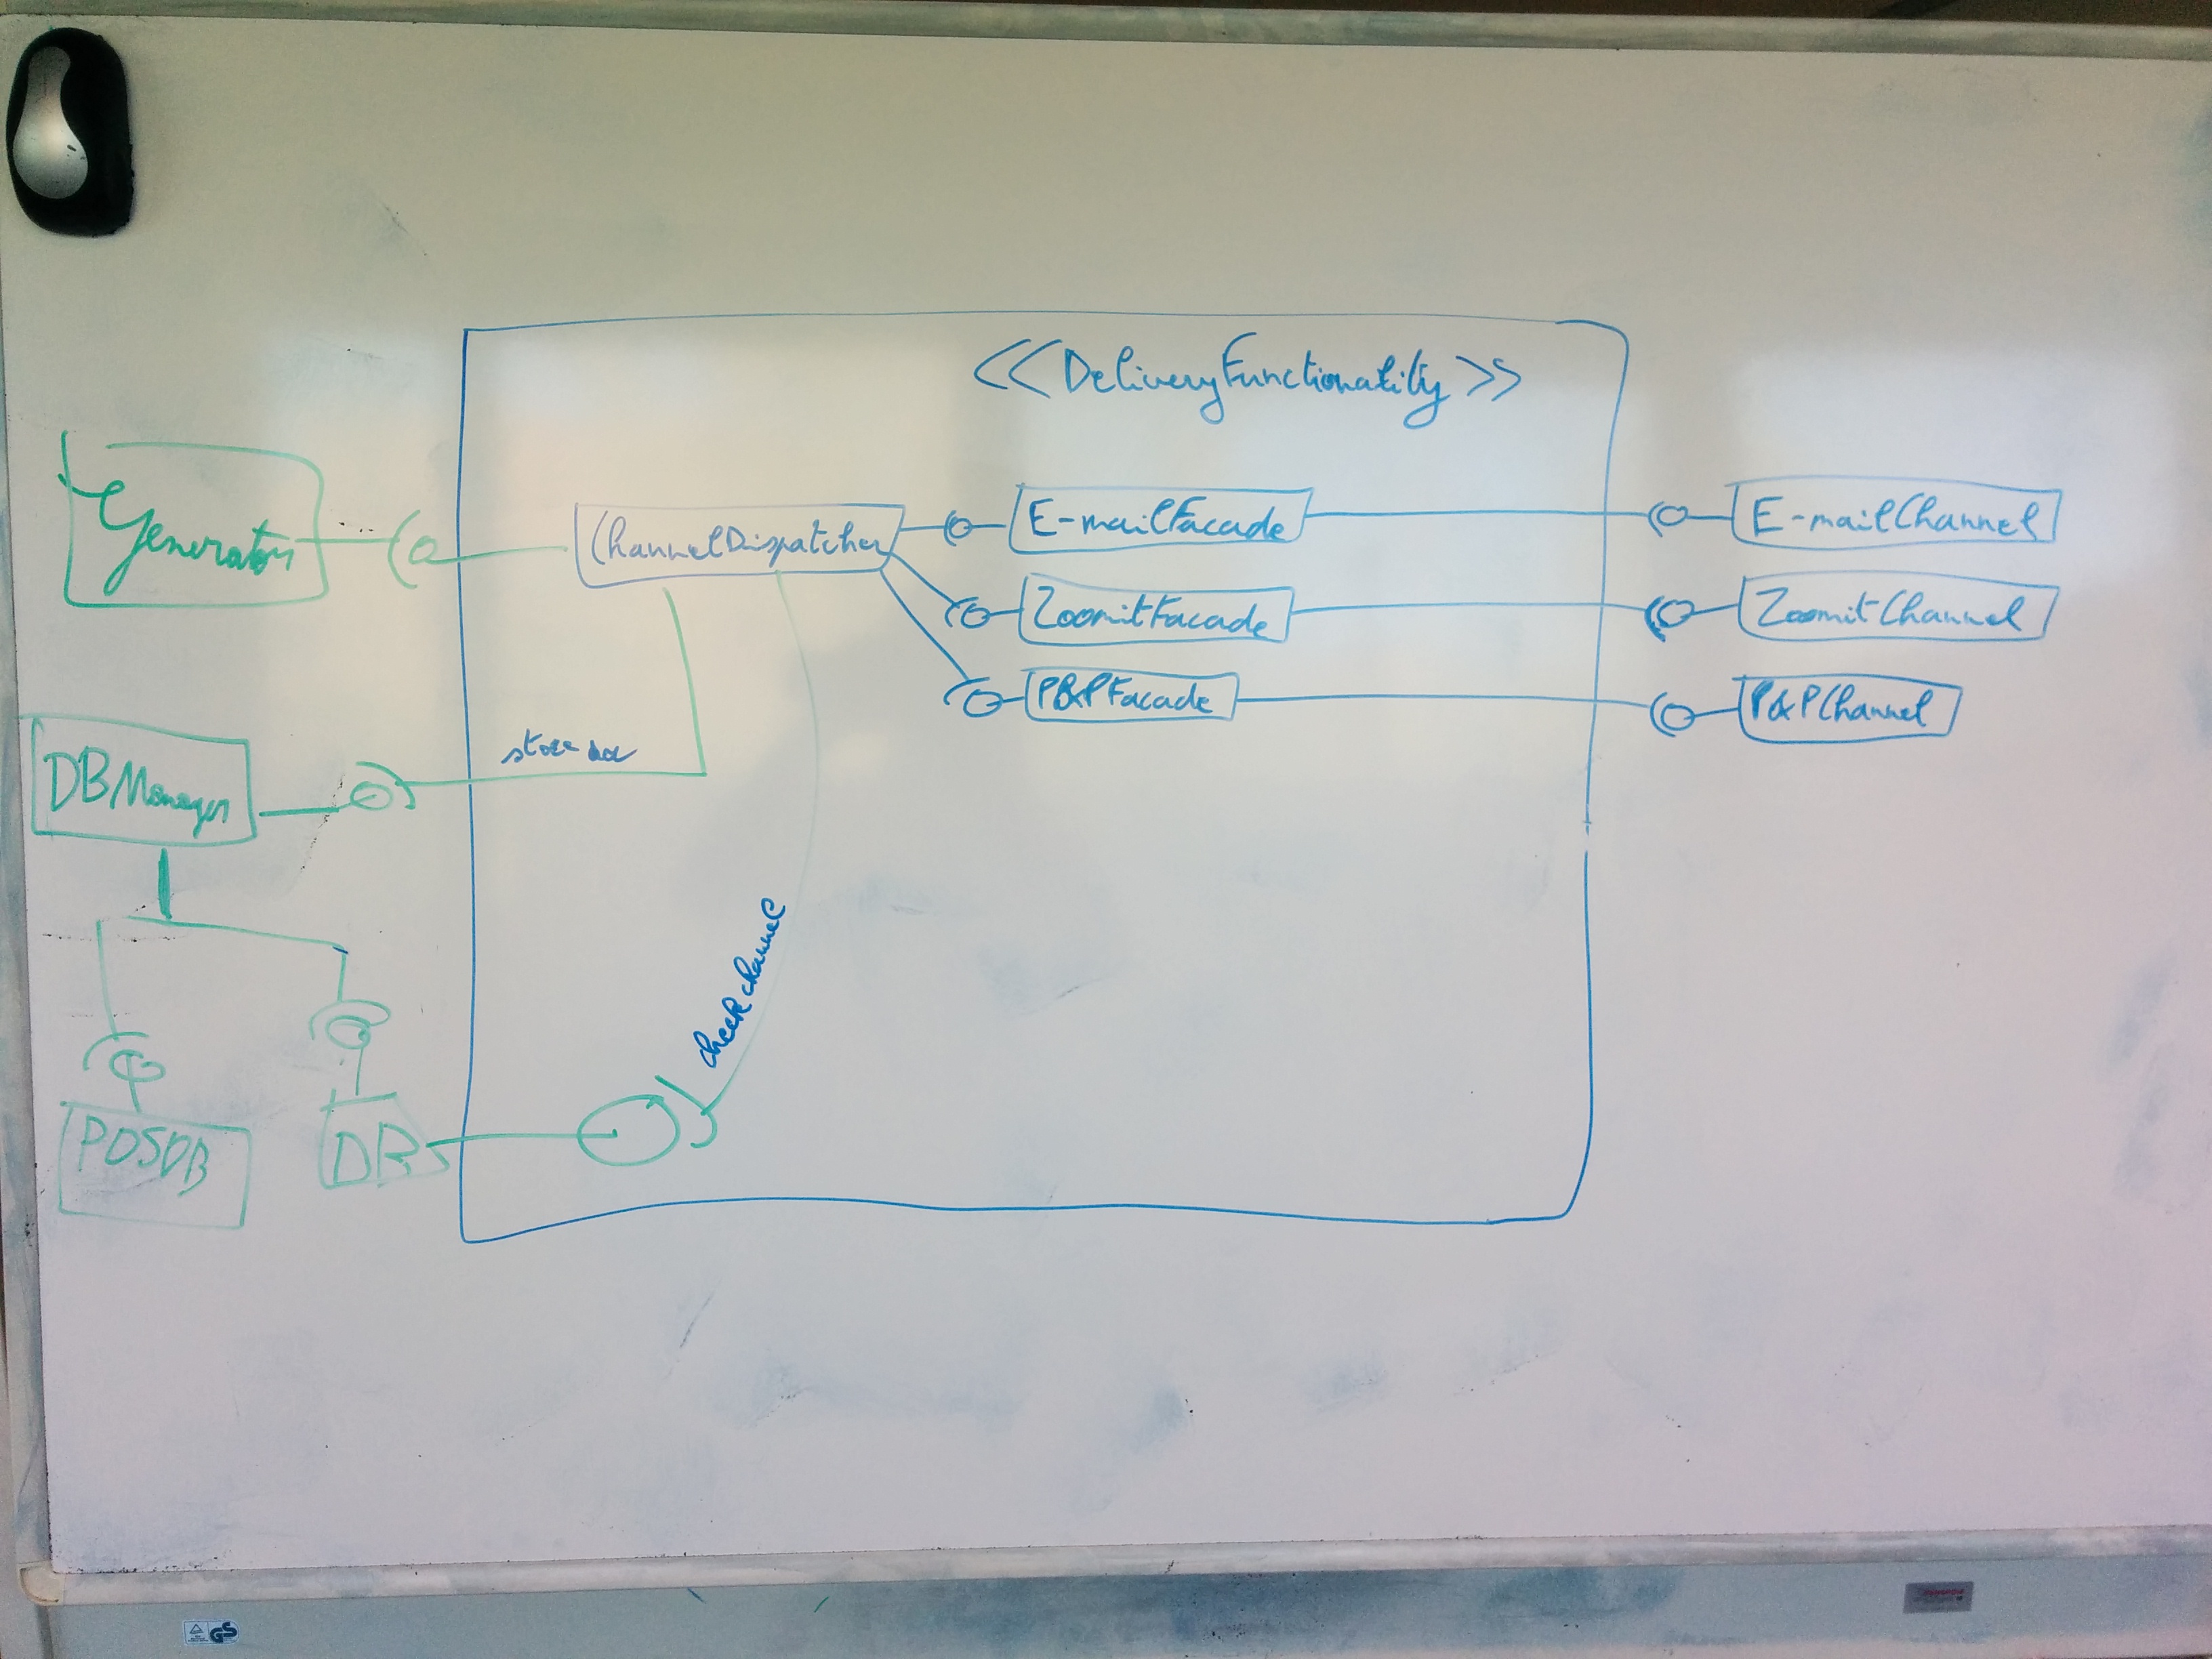 <<DeliveryFunctionality>>
Generator
ChannelDispatcher
E-mailFacade
E-mailChannel
ZoomitFacade
ZoomitChannel
P&PFacade
P&PChannel
DBManager
store
check channel
PDSDB
GS